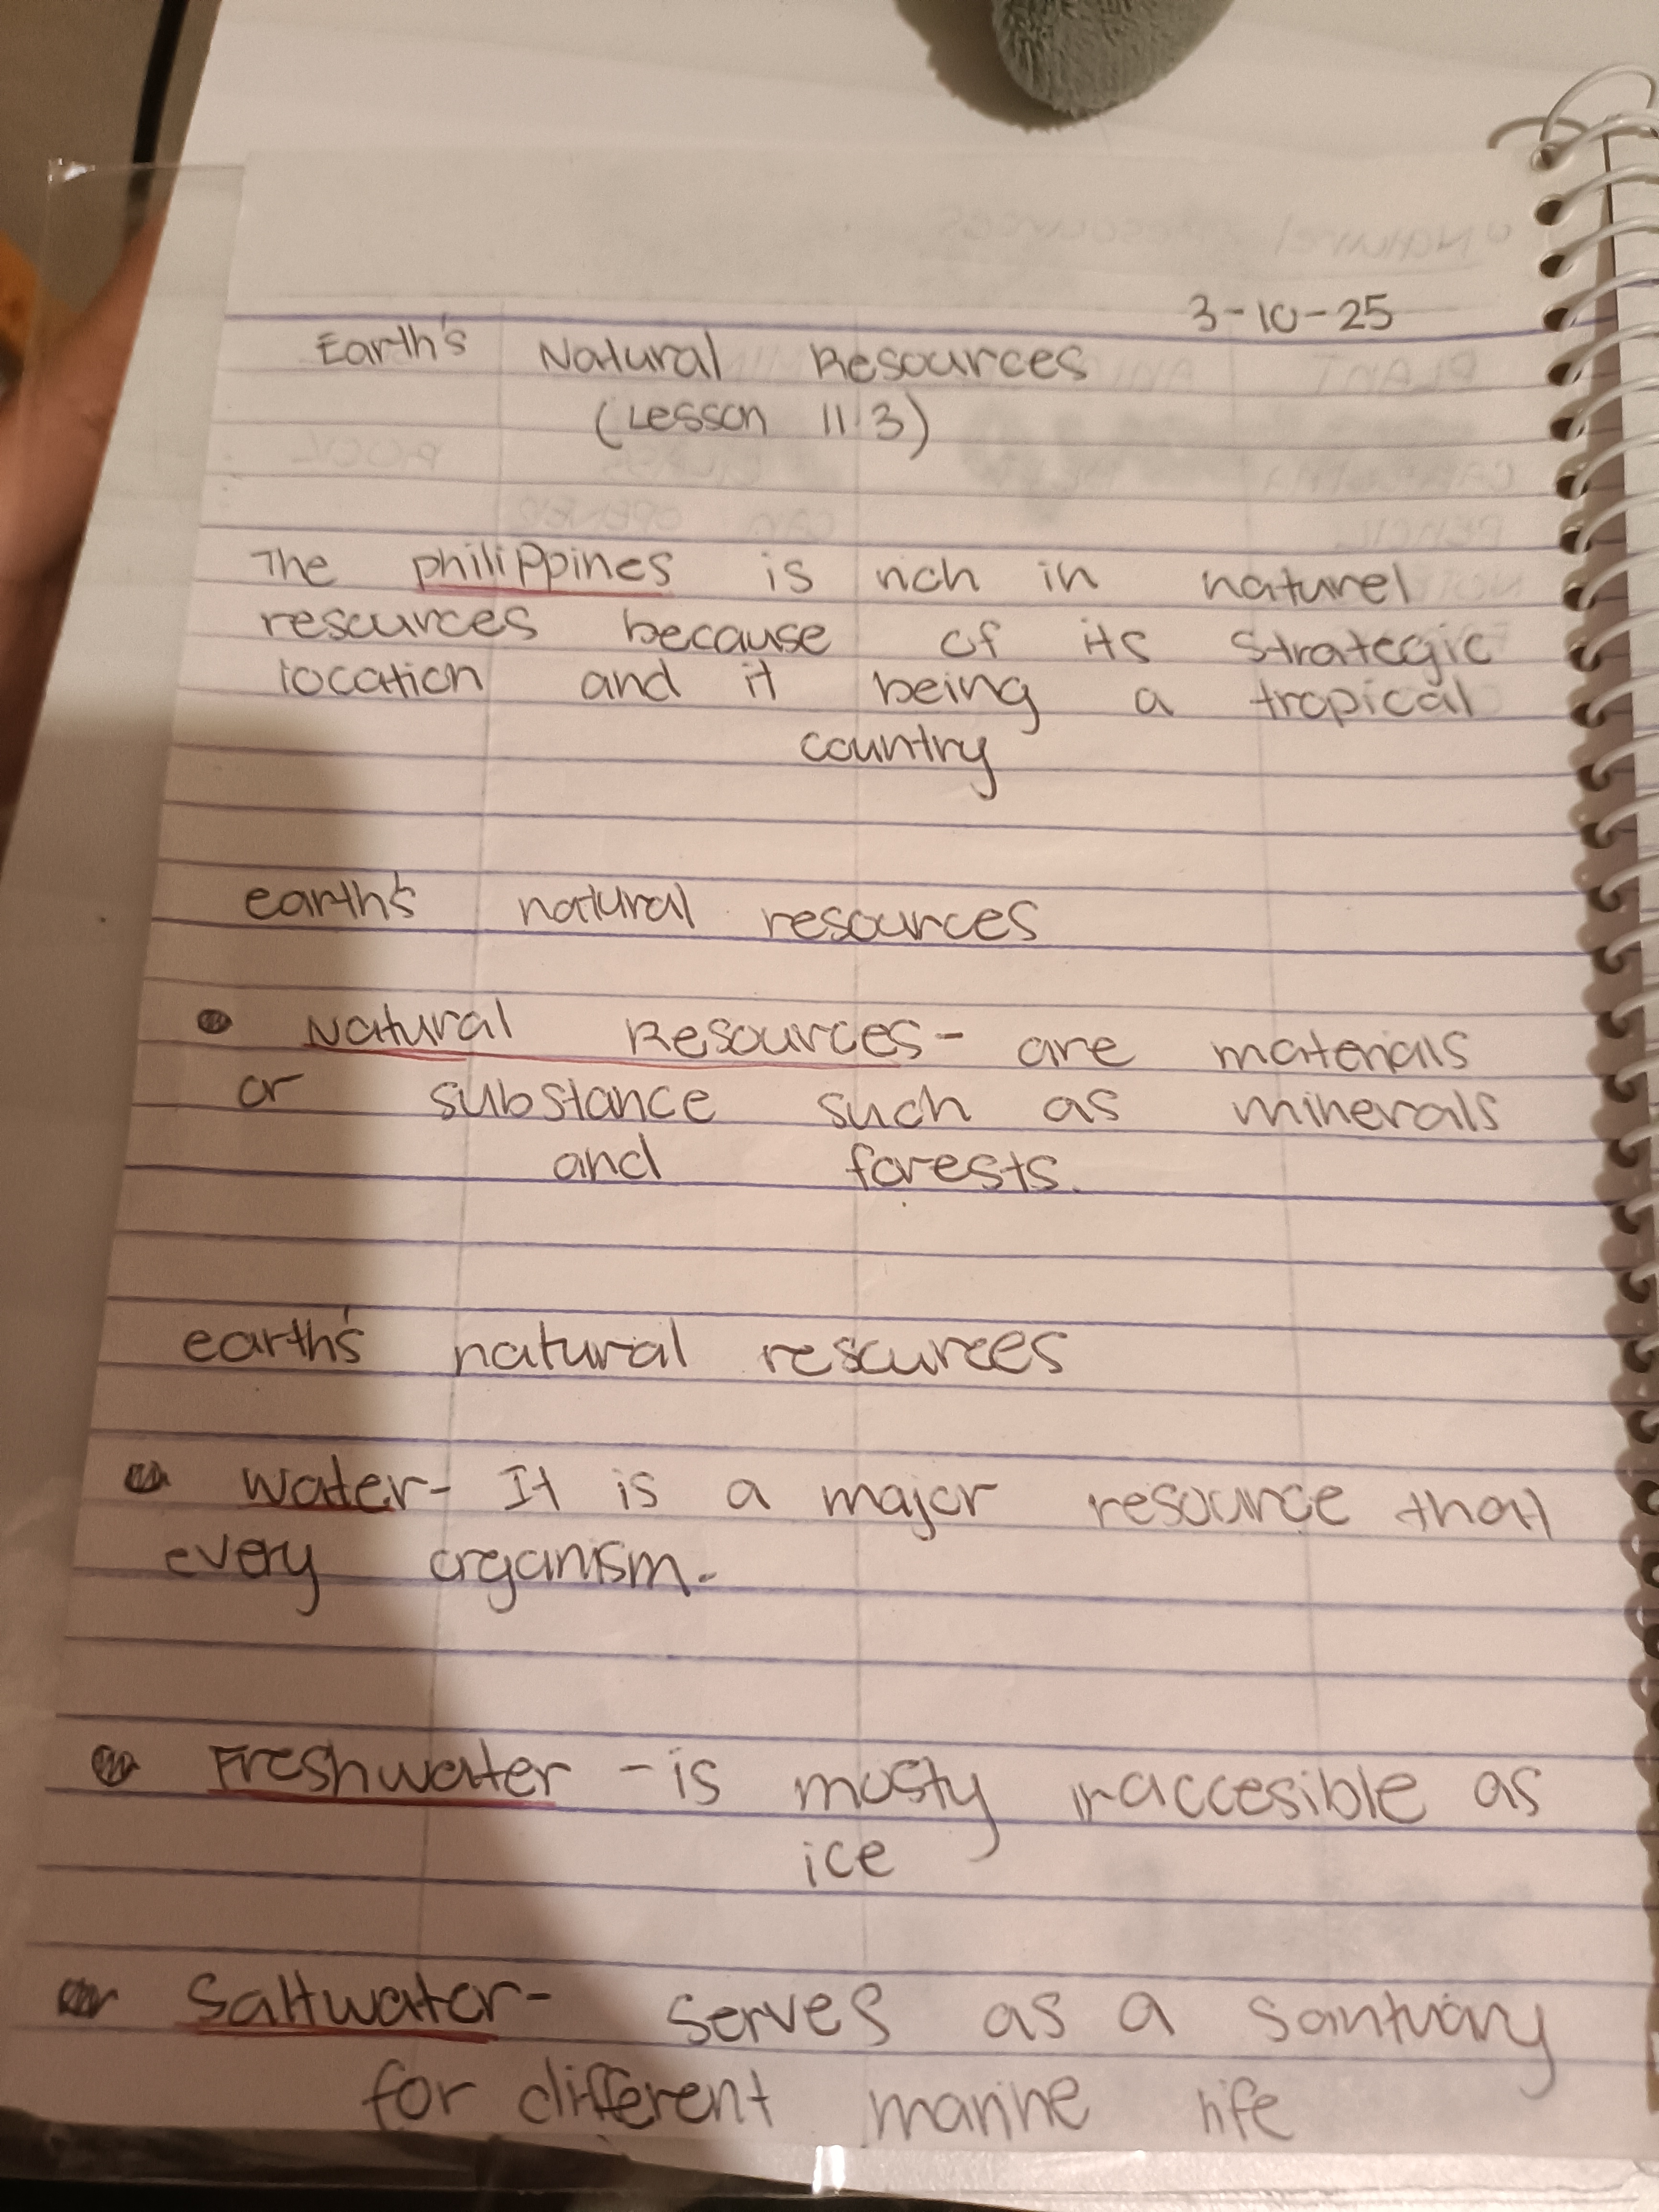 3-10-25
Earth's Natural Resources
(Lesson 11.3)
The philippines is rich in naturel
resources because of its strategic
location and it being a tropical
country
earth's natural resources
• Natural Resources- are materials
or substance such as minerals
and forests.
earth's natural resources
• water- It is a major resource that
every organism.
• Freshwater - is mosty inaccesible as
ice
• Saltwater- serves as a santuary
for different marine life